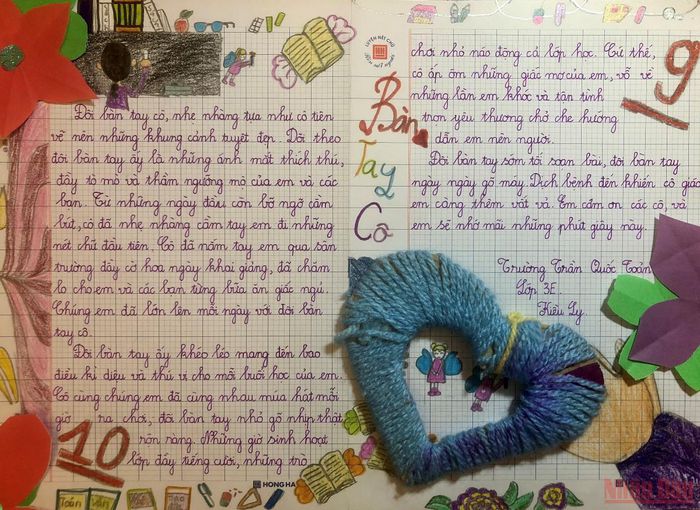 LUYỆN NÉT CHỮ
RÈN NẾT NGƯỜI
Bàn
Tay
Cô
Đôi bàn tay cô, nhẹ nhàng tựa như cô tiên
vẽ nên những khung cảnh tuyệt đẹp. Dõi theo
đôi bàn tay ấy là những ánh mắt thích thú,
đầy tò mò và thầm ngưỡng mộ của em và các
bạn. Từ những ngày đầu còn bỡ ngỡ cầm
bút, cô đã nhẹ nhàng cầm tay em đi những
nét chữ đầu tiên. Cô đã nắm tay em qua sân
trường đầy cờ hoa ngày khai giảng, đã chăm
lo cho em và các bạn từng bữa ăn giấc ngủ.
Chúng em đã lớn lên mỗi ngày với đôi bàn
tay cô.
Đôi bàn tay ấy khéo léo mang đến bao
điều kì diệu và thú vị cho mỗi buổi học của em.
Cô cùng chúng em đã cùng nhau múa hát mỗi
giờ ra chơi, đôi bàn tay nhỏ gõ nhịp thật
rộn ràng. Những giờ sinh hoạt
lớp đầy tiếng cười, những trò
10
Toán Văn
HONG HA
chơi nhỏ náo động cả lớp học. Cứ thế,
cô ấp ôm những giấc mơ của em, vỗ về
những lần em khóc và tận tình
trọn yêu thương chở che hướng
dẫn em nên người.
9
Đôi bàn tay sớm tối soạn bài, đôi bàn tay
ngày ngày gõ máy. Dịch bệnh đến khiến cô giáo
em càng thêm vất vả. Em cảm ơn các cô, và
em sẽ nhớ mãi những phút giây này.
Trường Trần Quốc Toản
Lớp 3E
Kiều Ly.
Nhân Dân